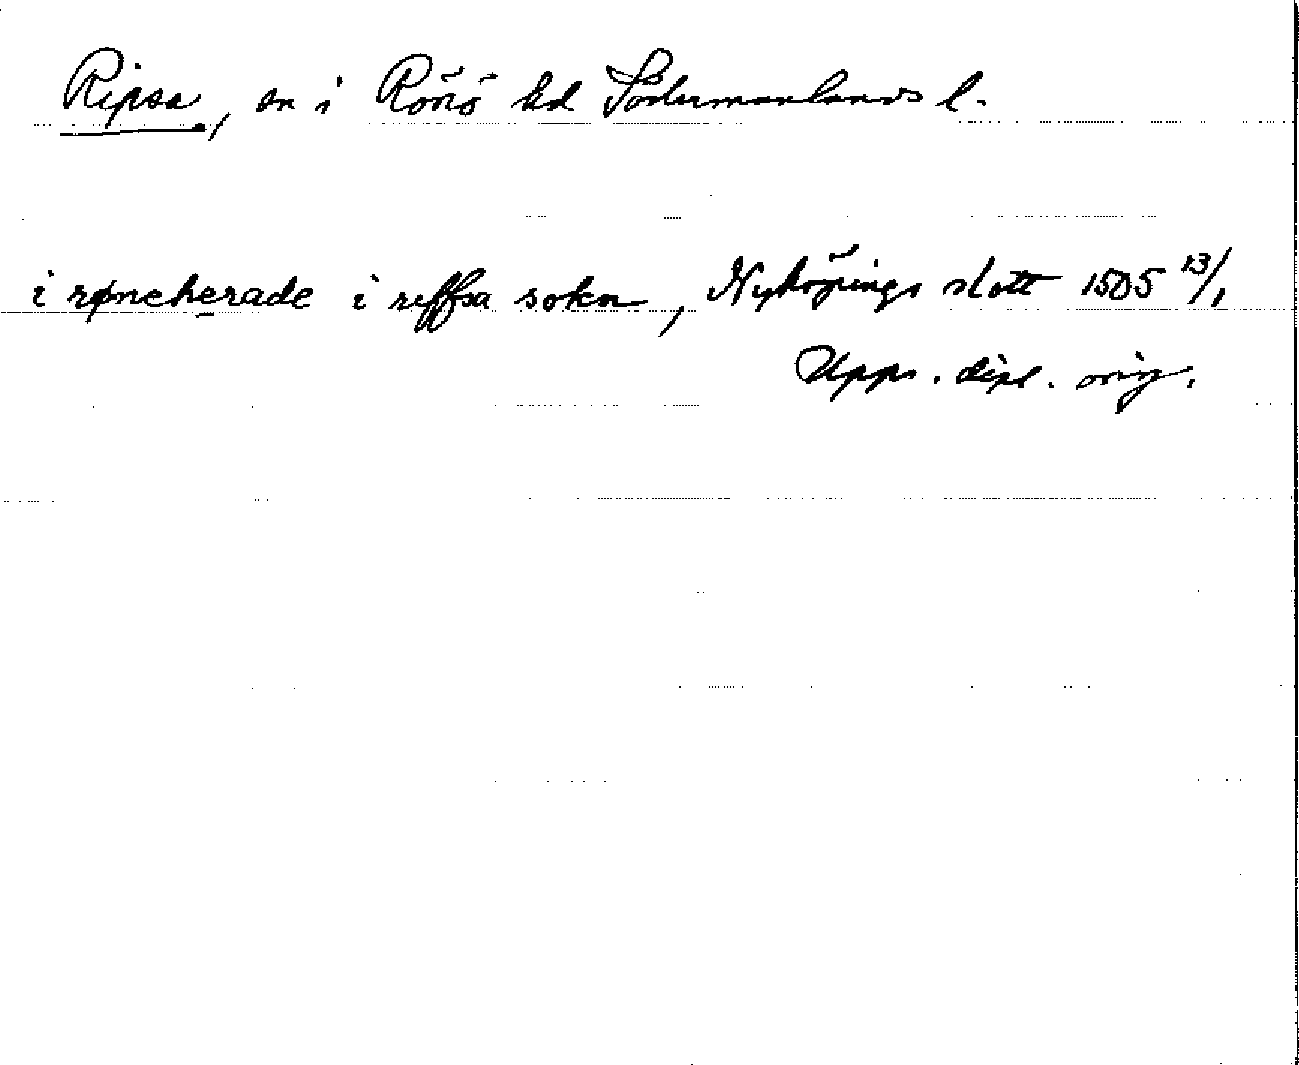 Ripsa, sn i Rönö hd Södermanlands l.
i røneherade i reffsa sokn, Nyköpings slott 1505 13/1
Upps. dipl. orig.